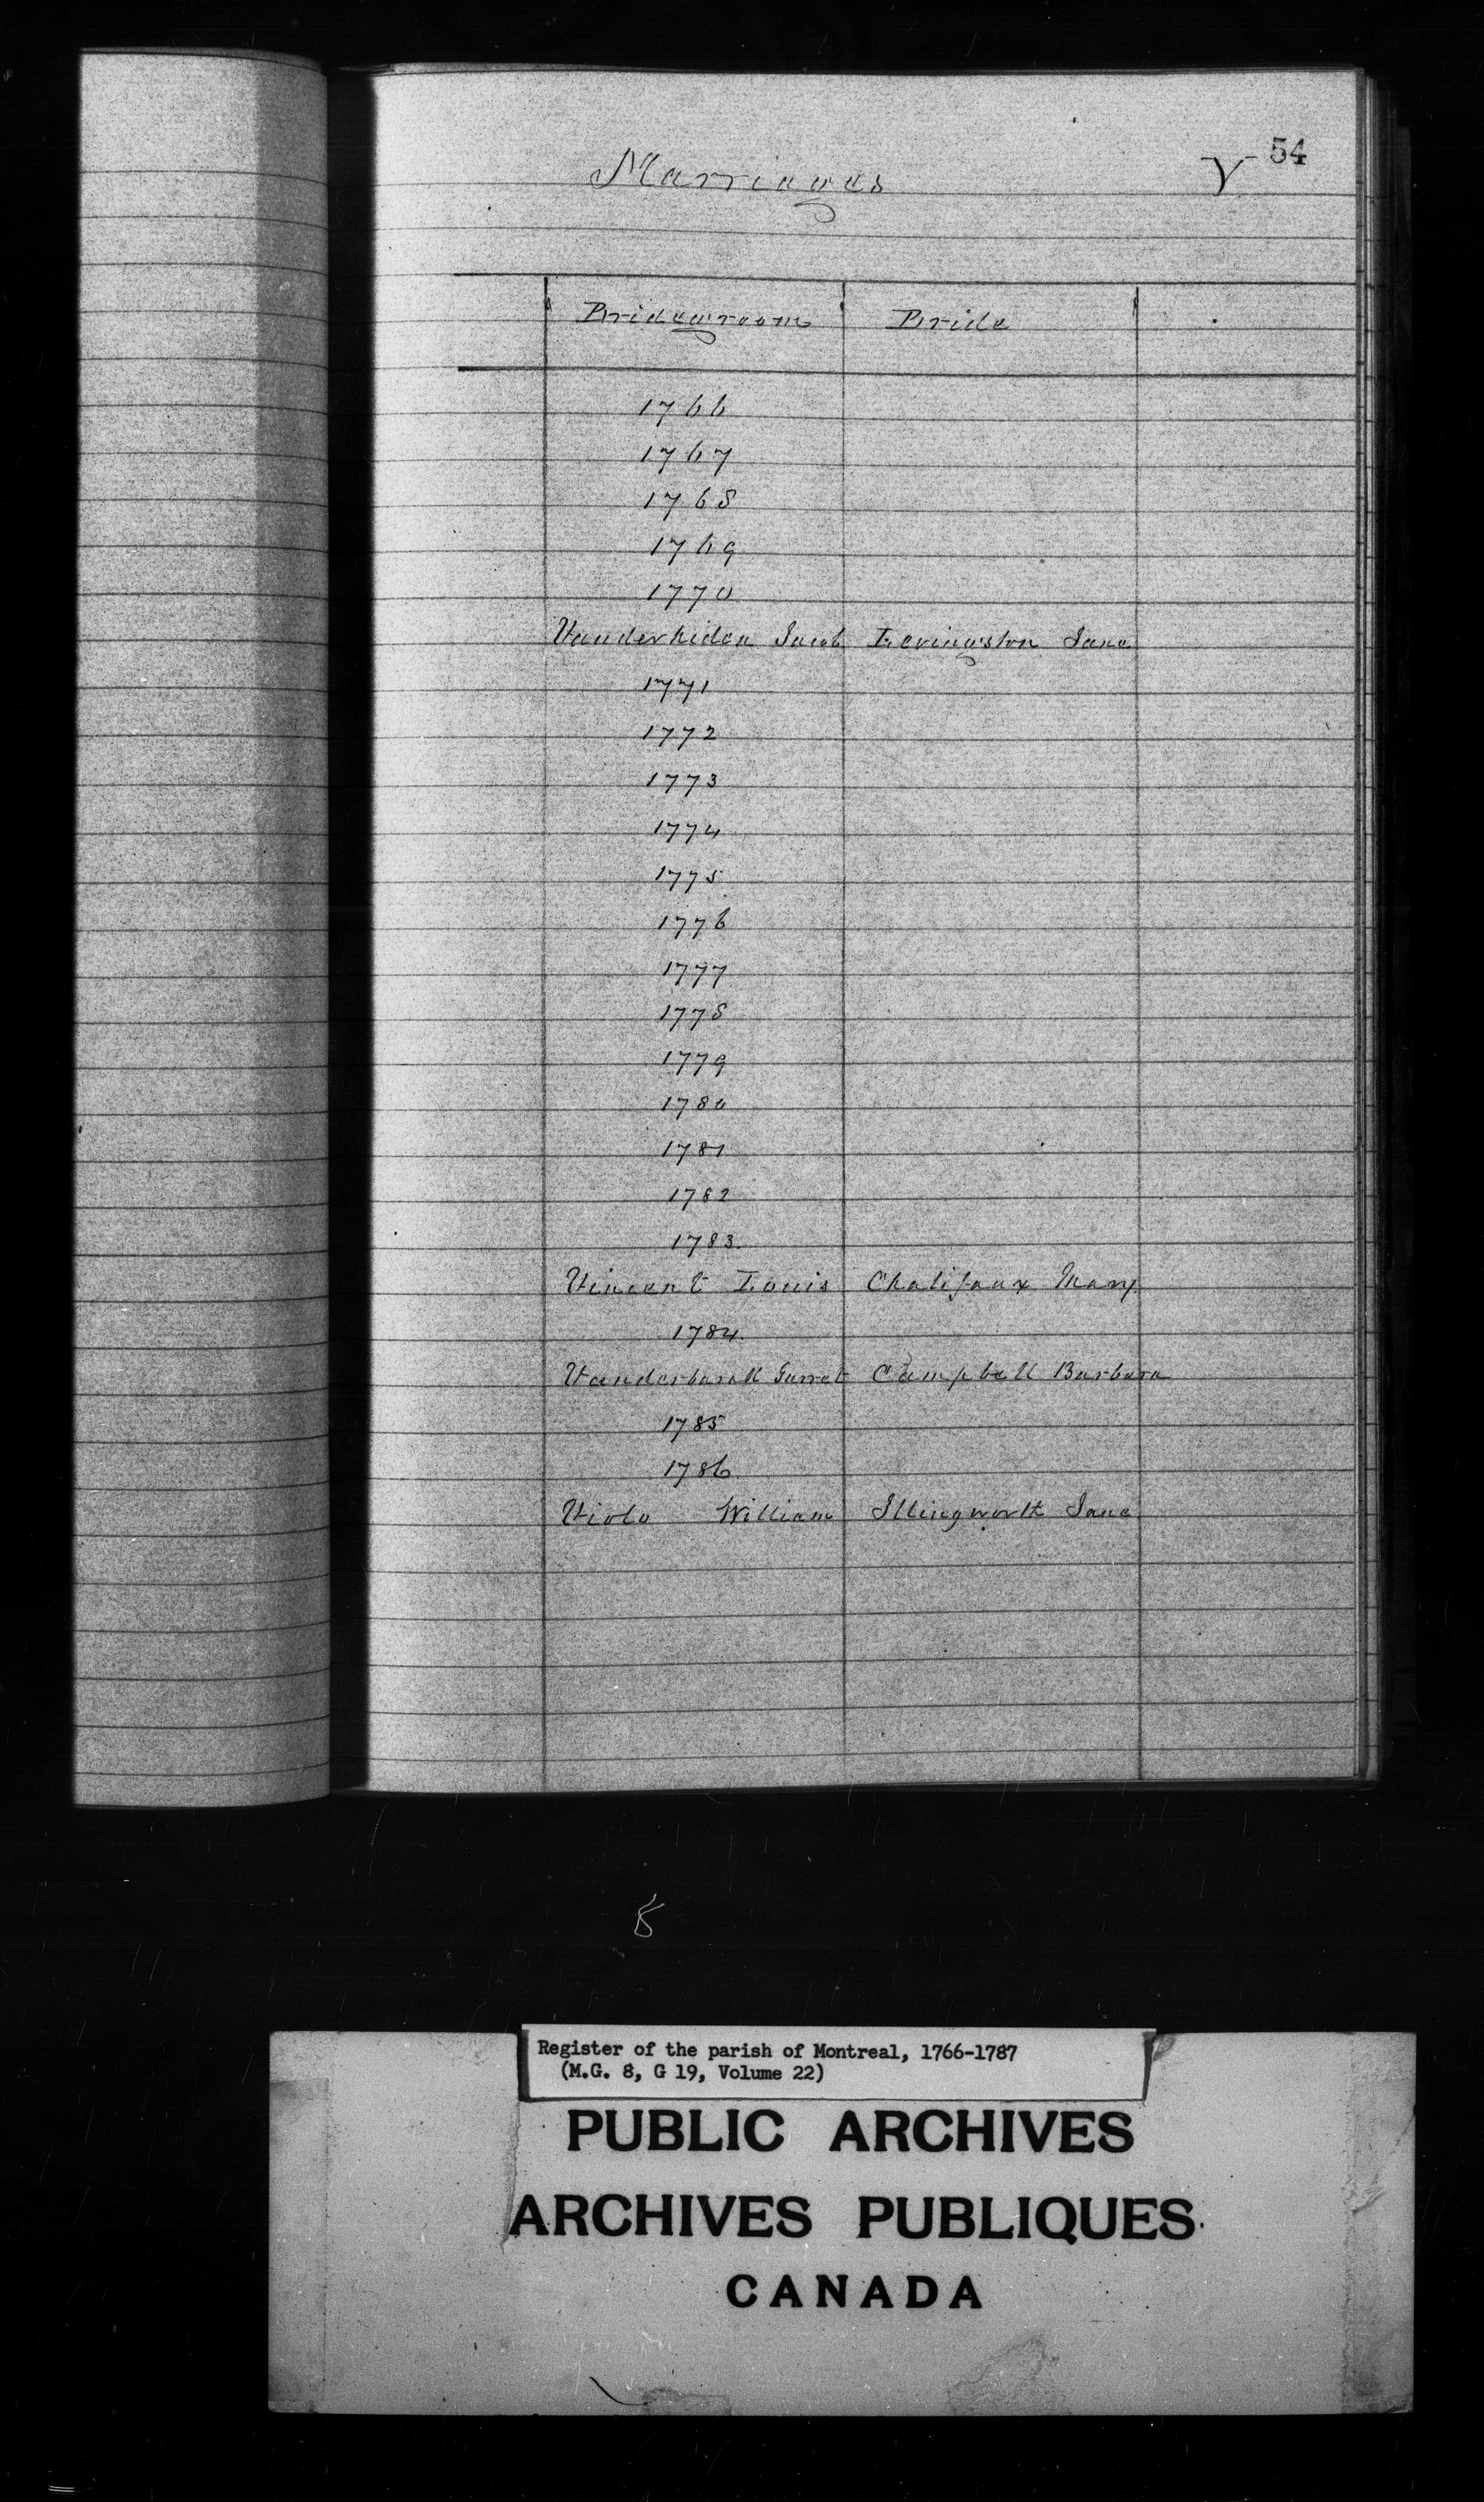 54
Marriages V
Bridegroom Bride
1766
1767
1768
1769
1770
Vanderhiden Jacob Levingston Jane
1771
1772
1773
1774
1775
1776
1777
1778
1779
1780
1781
1782
1783
Vincent Louis Chalifoux Mary
1784
Garret Campbell Barbara
1785
1786
William Illingworth Jane
8
Register of the parish of Montreal, 1766-1787
(M.G. 8, G 19, Volume 22)
PUBLIC ARCHIVES
ARCHIVES PUBLIQUES
CANADA